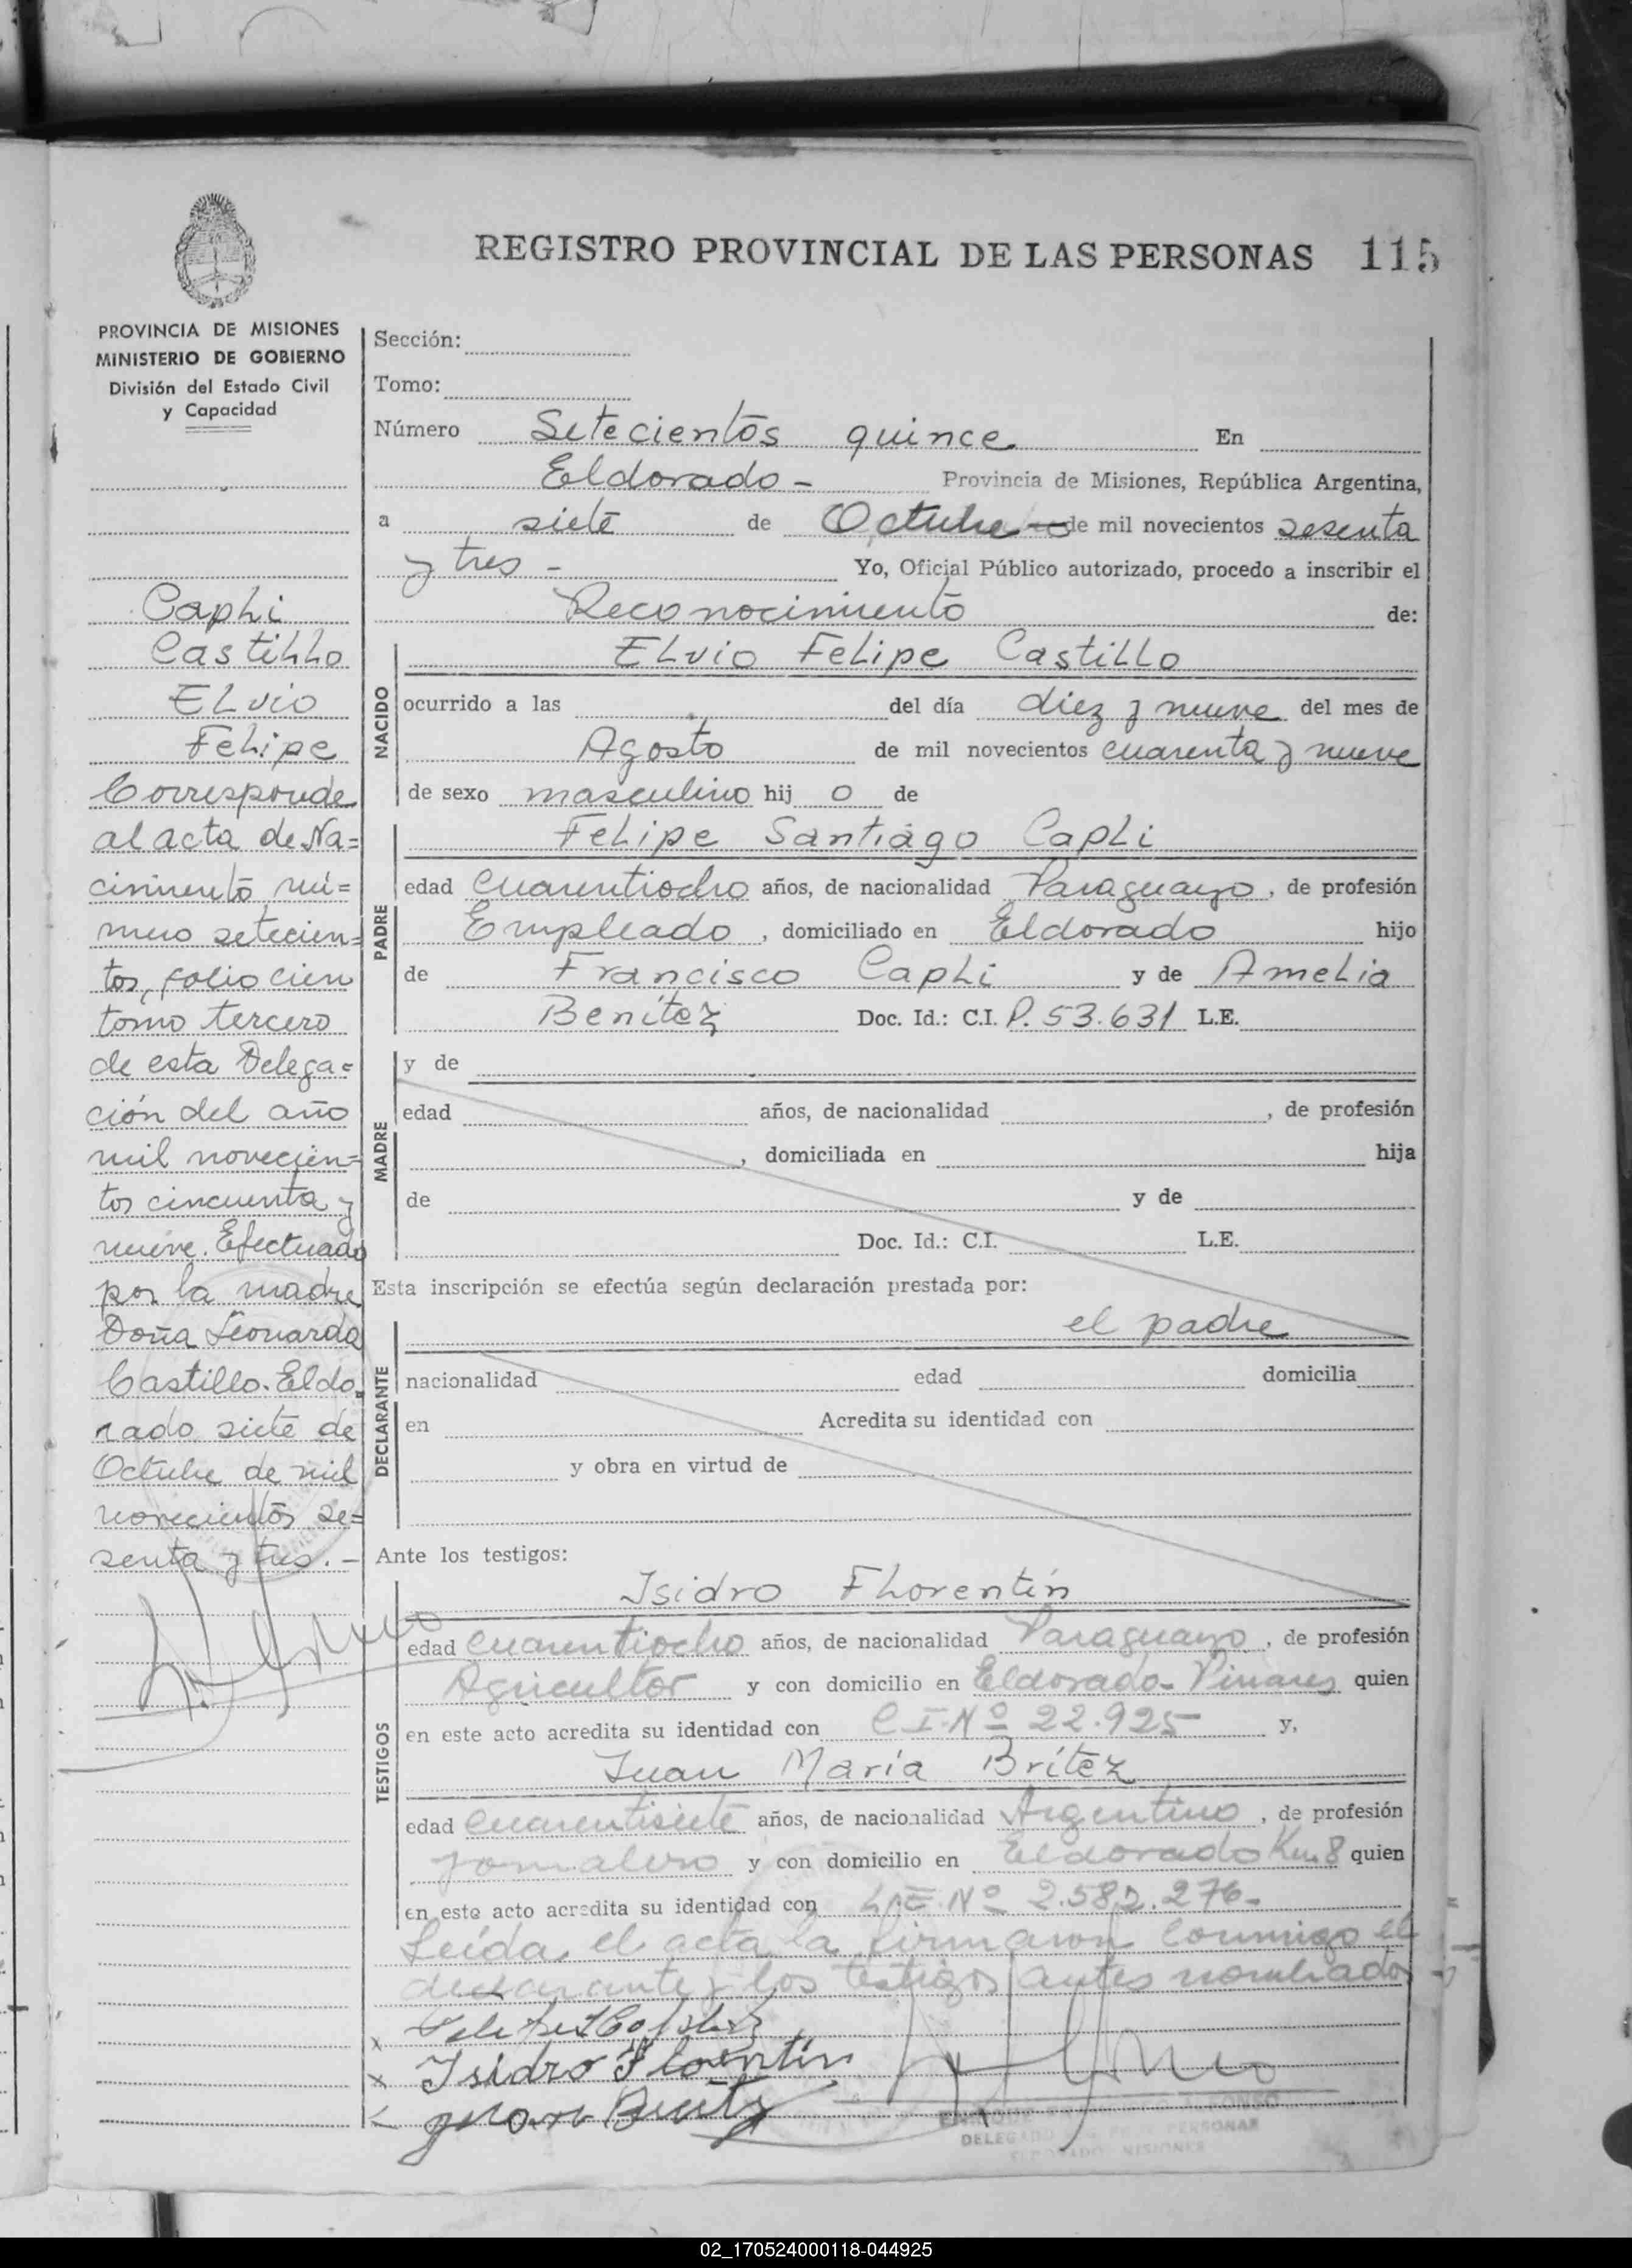 REGISTRO PROVINCIAL DE LAS PERSONAS 115
PROVINCIA DE MISIONES
MINISTERIO DE GOBIERNO
División del Estado Civil
y Capacidad
Caphi
Castillo
Elvio
Felipe
Corresponde
al acta de Na=
cimiento nú=
mero setecien=
tos, folio cien
tomo tercero
de esta Delega=
ción del año
mil novecien=
tos cincuenta y
nueve. Efectuado
por la madre
Doña Leonarda
Castillo. Eldo
rado siete de
Octubre de mil
novecientos se=
senta y tres. -
Sección:
Tomo:
Número Setecientos quince En
Eldorado - Provincia de Misiones, República Argentina,
a siete de Octubre de mil novecientos sesenta
y tres - Yo, Oficial Público autorizado, procedo a inscribir el
Reconocimiento de:
NACIDO
Elvio Felipe Castillo
ocurrido a las del día diez y nueve del mes de
Agosto de mil novecientos cuarenta y nueve
de sexo masculino hij o de
PADRE
Felipe Santiago Caphi
edad cuarentiocho años, de nacionalidad Paraguayo, de profesión
Empleado, domiciliado en Eldorado hijo
de Francisco Caphi y de Amelia
Benítez Doc. Id.: C.I. P. 53.631 L.E.
MADRE
y de
edad años, de nacionalidad , de profesión
, domiciliada en hija
de y de
Doc. Id.: C.I. L.E.
Esta inscripción se efectúa según declaración prestada por:
DECLARANTE
el padre
nacionalidad edad domicilia
en Acredita su identidad con
y obra en virtud de
Ante los testigos:
TESTIGOS
Isidro Florentín
edad cuarentiocho años, de nacionalidad Paraguayo, de profesión
Agricultor y con domicilio en Eldorado - Pinares quien
en este acto acredita su identidad con C.I. Nº 22.925 y,
Juan María Brítez
edad cuarentisiete años, de nacionalidad Argentino, de profesión
jornalero y con domicilio en Eldorado Km. 8 quien
en este acto acredita su identidad con L.E. Nº 2.582.276-
Leída el acta la firmaron conmigo el
declarante y los testigos antes nombrados
x
x Isidro Florentín
DELEGADO
02_170524000118-044925